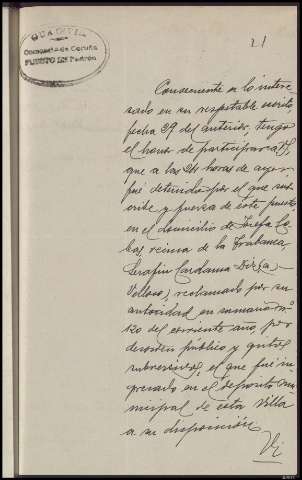 21
GUARDIA CIVIL
Comandancia de Coruña
PUESTO DE Padrón
Consecuente a lo intere-
sado en su respetable escrito,
fecha 29 del anterior, tengo
el honor de participar a V.
que a las 24 horas de ayer
fué detenido por el que sus-
cribe y fuerza de este puesto
en el domicilio de Josefa
vecina de la Trabanca,
Serafín Cardama (a)
Velloso, reclamado por su
autoridad en sumario nº
del corriente año, por
desorden público y gritos
subversivos, el que fué in-
gresado en el deposito mu-
nicipal de esta villa
a su disposición.